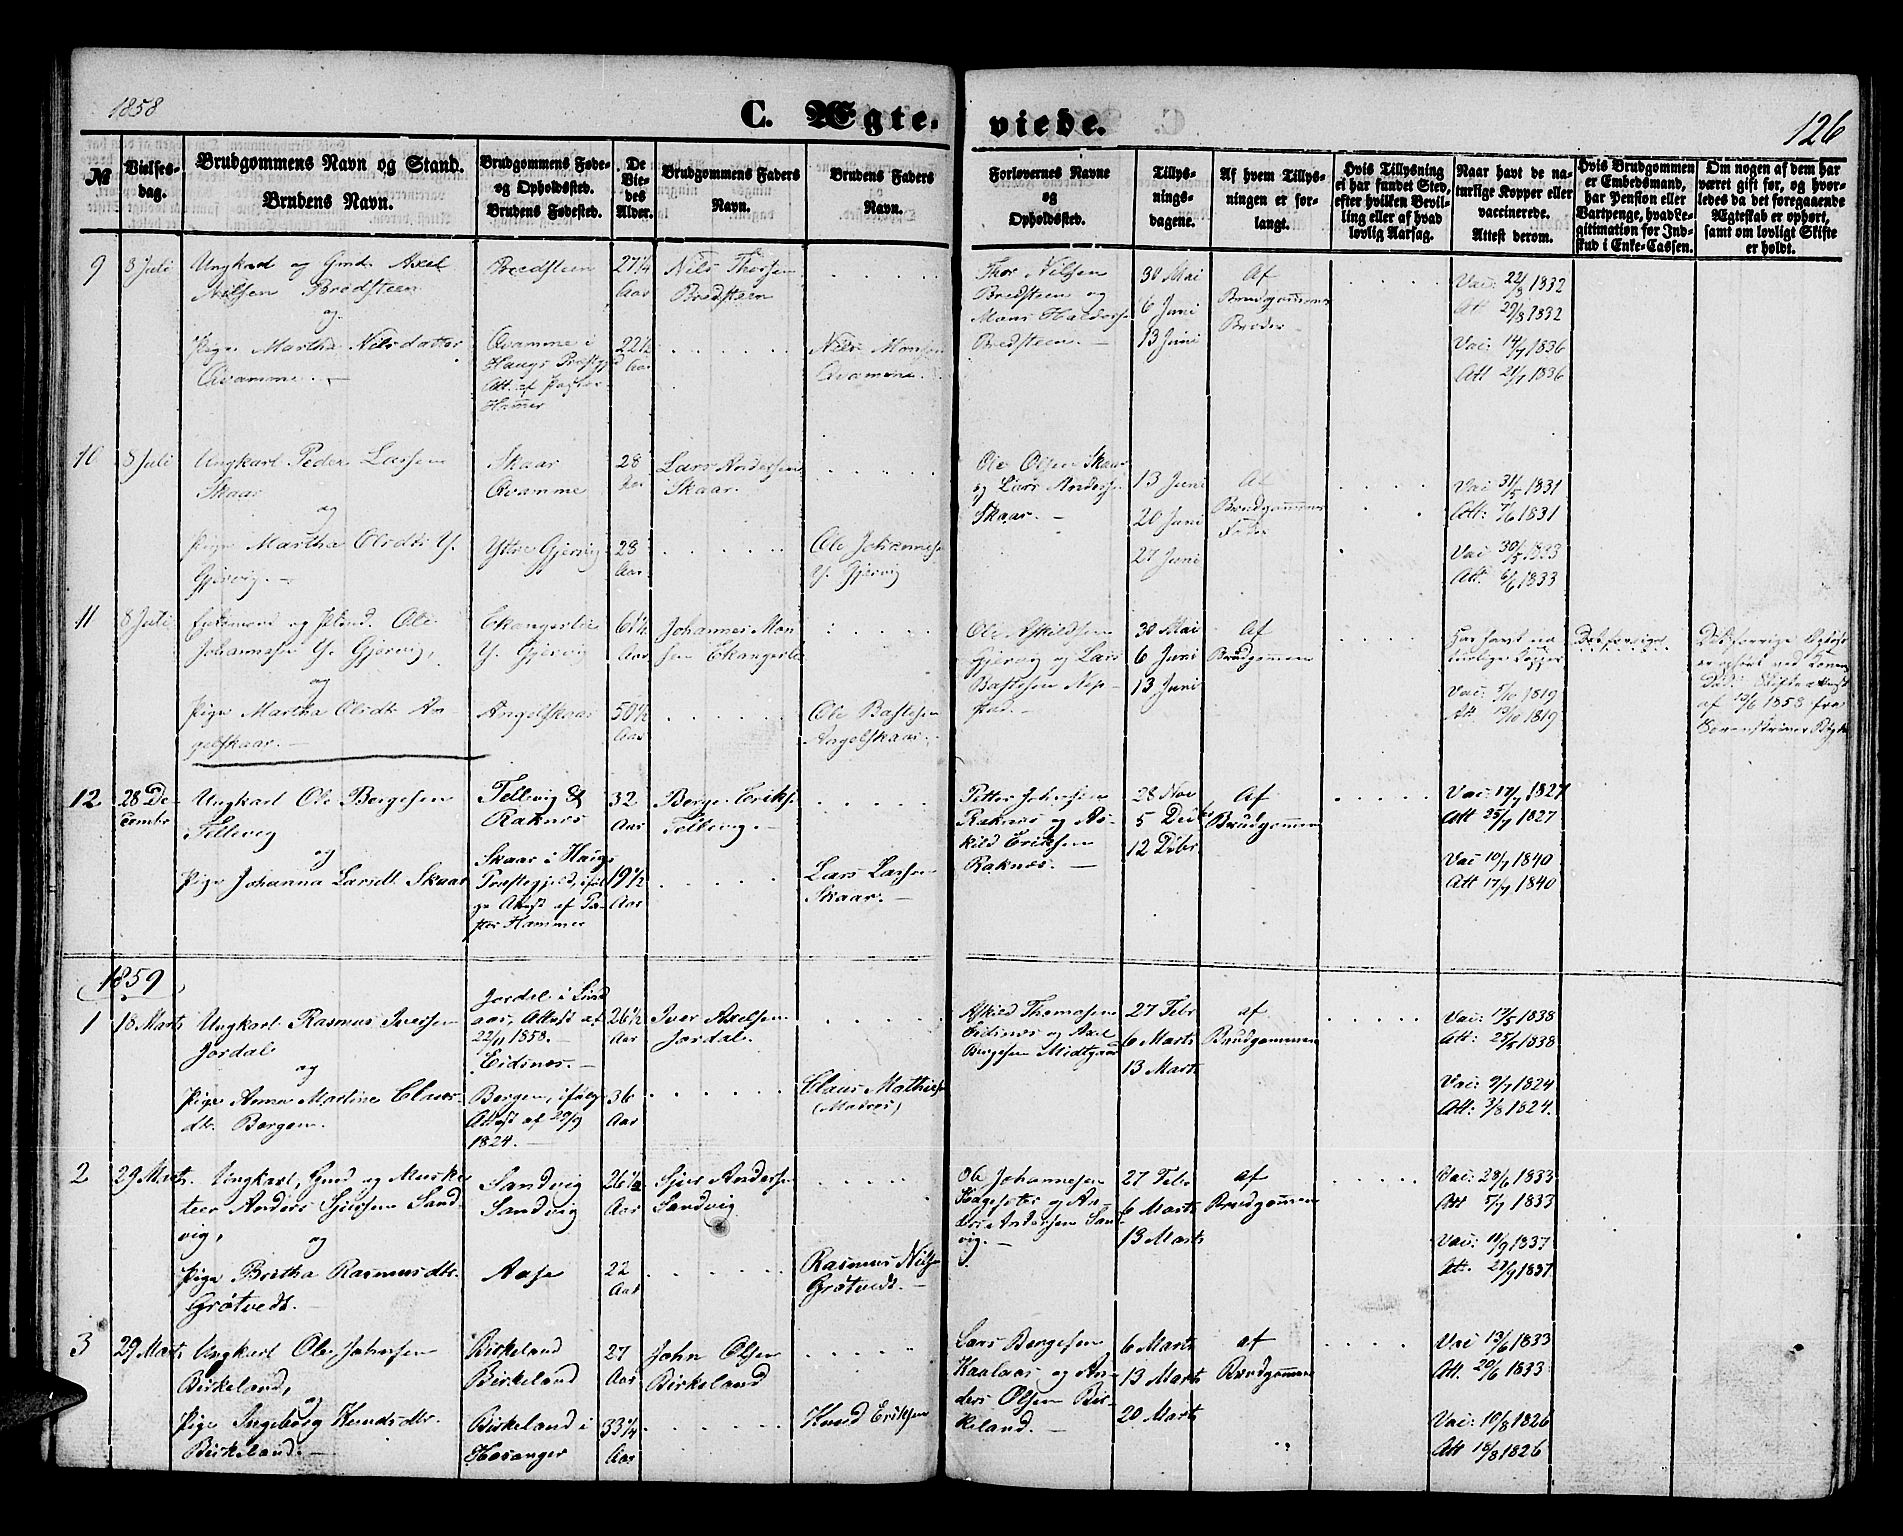 1858
C. Ægte-
viede.
126
№
Vielses-
dag.
Brudgommens Navn og Stand.
Brudens Navn.
Brudgommens Føde-
og Opholdssted.
Brudens Fødested.
De
Vie-
des
Alder.
Brudgommens Faders
Navn.
Brudens Faders
Navn.
Forlovernes Navne
og
Opholdssted.
Tillys-
nings-
dagene.
Af hvem Tillys-
ningen er for-
langt.
Hvis Tillysning
ei har fundet Sted,
efter hvilken Bevil-
ling eller af hvad
lovlig Aarsag.
Naar havt de na-
turlige Kopper eller
vaccinerede.
Attest derom.
Hvis Brudgommen
er Embedsmand,
har Pension eller
Vartpenge, hvad Le-
gitimation for Ind-
skud i Enke-Cassen.
Om nogen af dem har
været gift før, og hvor-
ledes da det foregaaende
Ægteskab er ophørt,
samt om lovligt Skifte
er holdt.
9
8 Juli
Ungkarl og Gmd. Axel
Nilsen Bredsteen
og
Pige Martha Nilsdatter
Qvamme. —
Bredsteen
Qvamme i
Haugs Præstegjd
Att. af Pastor
Hamer
27¼
Aar
22½
Aar
Nils Thorsen
Bredsteen
Nils Monsen
Qvamme.
Thor Nilsen
Bredsteen og
Mons Haldorse
Bredsteen. —
30 Mai
6 Juni
13 Juni
Af
Brudgommens
Broder
Vac: 22/8 1832
Att 29/8 1832
Vac: 14/7 1836
Att 21/7 1836
10
8 Juli
Ungkarl Peder Larsen
Skaar
og
Pige Martha Olsdtr Y.
Gjervig. —
Skaar
Qvamme
Yttre Gjervig
28
Aar
28
Aar
Lars Andersen
Skaar.
Ole Johannese
Y. Gjervig
Ole Olsen Skaar
og Lars Anderse
Skaar. —
13 Juni
20 Juni
27 Juni
Af
Brudgommens
Fader
Vac 31/5 1831
Att: 7/6 1831
Vac 30/5 1833
Att. 6/6 1833
11
8 Juli
Enkemand og Ole
Johannesen Y. Gjervig,
og
Pige Martha Olsdtr An-
gelskaar. —
Ekangerlie
Y. Gjervig
Angelskaar
61½
Aar
50½
Aar
Johannes Mon
sen Ekangerlie
Ole Bastesen
Angelskaar.
Ole Askildsen
Gjervig og Lars
Bastesen Nep-
stad. —
30 Mai
6 Juni
13 Juni
Af
Brudgommen
Har havt na
turlige Kopper
Vac: 5/10 1819
Att. 12/10 1819
Det forrige
er ophørt ved Konens
Død. Skifteattest
af 22/6 1858 fra
Sorenskriver
12
28 De-
cembr
Ungkarl Ole Børgesen
Tellevig
og
Pige Johanna Larsdtr Skaar
Tellevig &
Raknes
Skaar i Haugs
Præstegjeld, ifølg
ge Attest af Pa-
stor Hammer
32
Aar
19½
Aar
Børge Eriks.
Tellevig. —
Lars Larsen
Skaar. —
Petter Johnsen
Raknes og As-
kild Eriksen
Raknes. —
28 Nov
5 Decbr
12 Dcbr.
Af
Brudgommen
Vac: 17/7 1827
Att 25/7 1827
Vac 10/7 1840
Att 17/7 1840
1859
1
18. Marts
Ungkarl Rasmus Iversen
Jordal
og
Pige Anna Martine Claus-
dtr. Bergen.
Jordal i Lind
aas, Attest af
22/11 1858. —
Eidsnes. —
Bergen, ifølge
Attest af 29/9
1824. —
26½
Aar
36
Aar
Iver Axelsen
Jordal.
Claus Mathiese
(Matros)
Askild Thomasen
Eidsnes og Axel
Børgesen Midtgaard
27 Febr
6 Marts
13 Marts
af
Brudgommen
Vac: 17/5 1838
Att: 25/5 1838
Vac: 9/7 1824
Att: 3/8 1824.
2
29 Marts.
Ungkarl, Gmd og Muske
teer Anders Sjursen Sand-
vig,
og
Pige Brita Rasmusdtr.
Grøtvedt. —
Sandvig
Sandvig
Aase
26½
Aar
22
Aar
Sjur Andersen
Sandvig
Rasmus Nilse
Grøtvedt. —
Ole Johannesen
og An-
ders Andersen Sand
vig. —
27 Febr
6 Marts
13 Marts
af
Brudgommen
Vac: 28/6 1833
Att 5/7 1833
Vac: 11/9 1837
Att. 23/9 1837
3
29 Marts
Ungkarl Ole Johnsen
Birkeland,
og
Pige Ingeborg Knudsdtr.
Birkeland. —
Birkeland
Birkeland
Birkeland i
Hosanger
27
Aar
33¼
Aar
John Olsen
Birkeland
Knud Eriksen
Lars Børgesen
Kaalaas og An-
ders Olsen Bir-
keland. —
6 Marts
13 Marts
20 Marts
af
Brudgommen
Vac 13/6 1833
Att. 20/6 1833
Vac: 10/8 1826
Att 18/8 1826